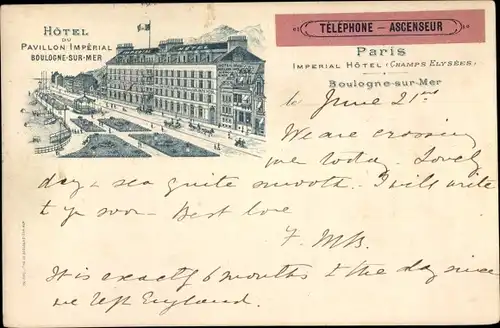 HÔTEL
DU
PAVILLON IMPÉRIAL
BOULOGNE-SUR-MER
TÉLÉPHONE — ASCENSEUR
Paris
IMPERIAL HÔTEL (CHAMPS ELYSÉES)
Boulogne-sur-Mer
le June 21st
We are crossing
over today. Lovely
day & sea quite smooth. I will write
to you soon. Best love
F. MB.
It is exactly 6 months to the day since
we left England.